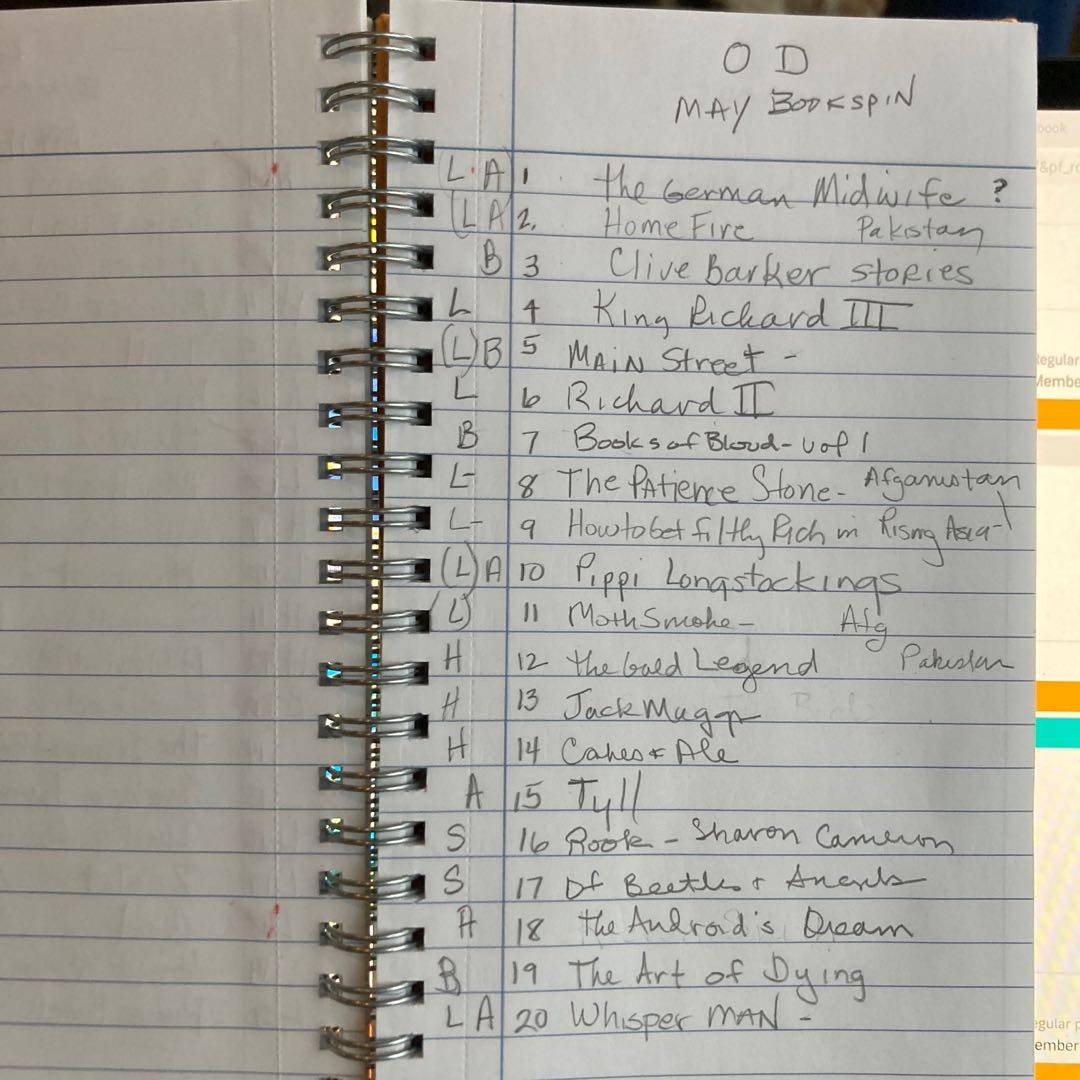 O D
MAY BOOKSPIN
L A 1 the German Midwife ?
(LA 2. Home Fire Pakistan
B 3 Clive Barker stories
L 4 King Richard III
(L) B 5 MAIN Street -
L 6 Richard II
B 7 Books of Blood - vol 1
L- 8 The PAtience Stone - Afganistan
L- 9 How to Get filthy Rich in Rising Asia -
(L) A 10 Pippi Longstockings
(L) 11 Moth Smoke - Afg
H 12 the Gold Legend Pakistan
H 13 Jack Maggs
H 14 Cakes + Ale
A 15 Tyll
S 16 Rook - Sharon Cameron
S 17 Of Beetles + Angels
A 18 the Android's Dream
B 19 The Art of Dying
L A 20 Whisper MAN -
book
&pf_r
Regular
Membe
egular p
ember